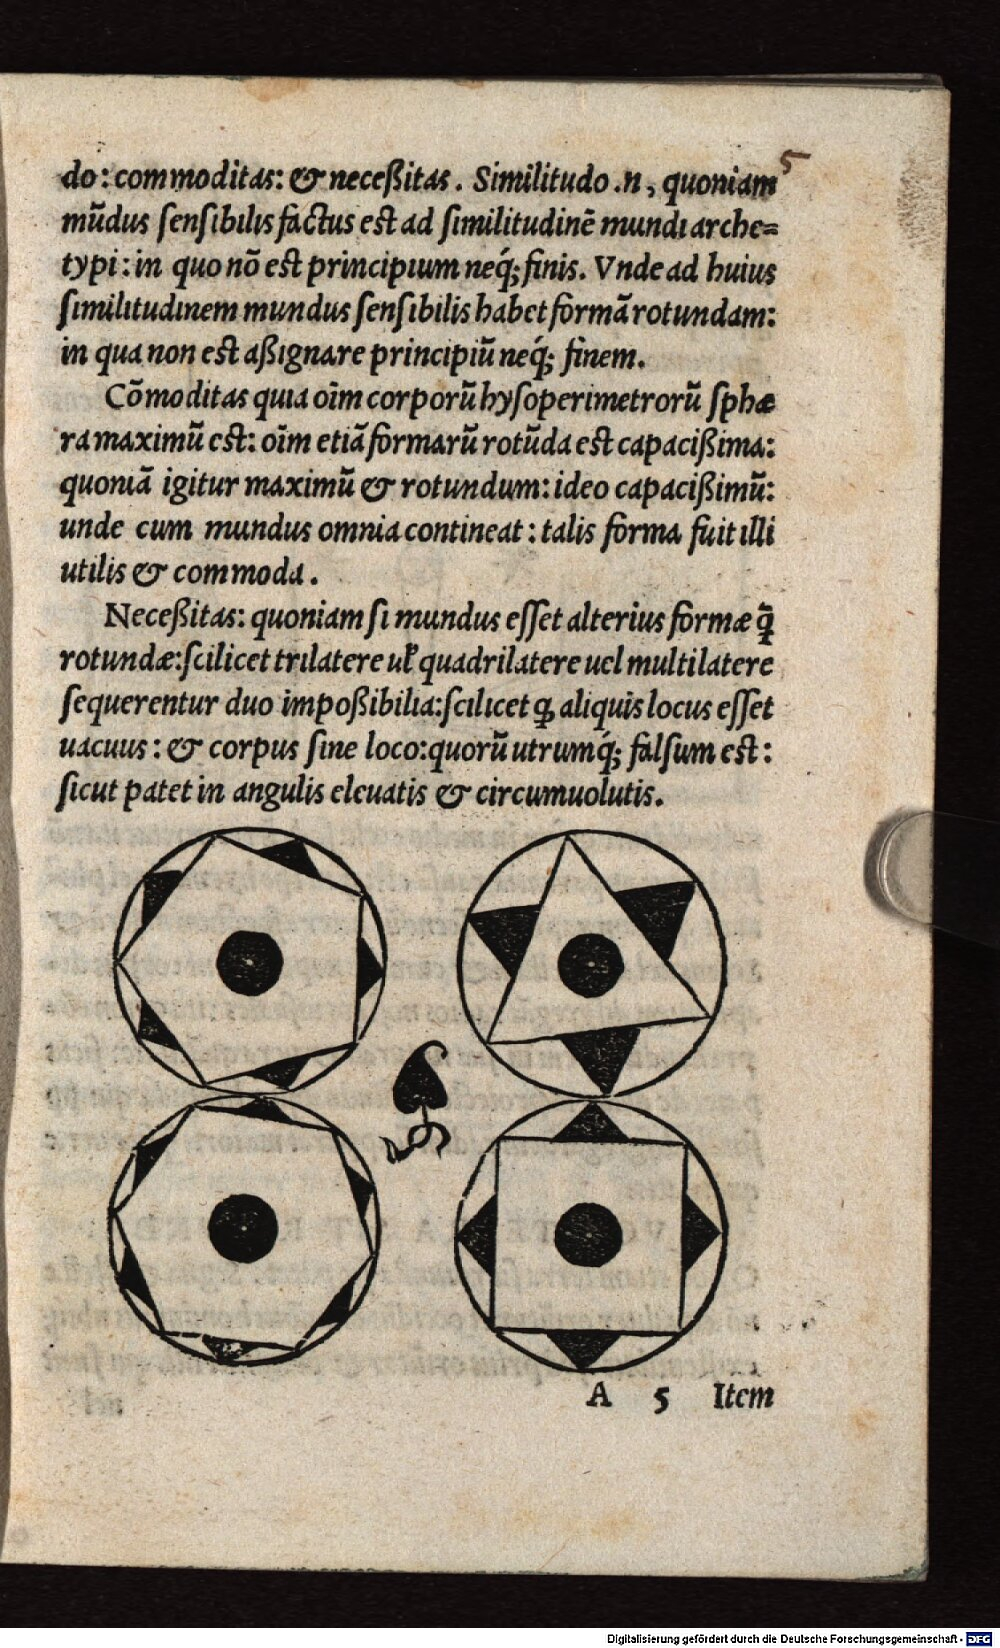 5
do: commoditas: & neceßitas. Similitudo .n, quoniam
mũdus ſenſibilis factus est ad ſimilitudinẽ mundi arche=
typi: in quo nõ est principium neq́; finis. Vnde ad huius
ſimilitudinem mundus ſenſibilis habet formã rotundam:
in qua non est aßignare principiũ neq́; finem.
Cõmoditas quia oĩm corporũ hyſoperimetrorũ ſphæ
ra maximũ est: oĩm etiã formarũ rotũda est capacißima:
quoniã igitur maximũ & rotundum: ideo capacißimũ:
unde cum mundus omnia contineat: talis forma fuit illi
utilis & commoda.
Neceßitas: quoniam ſi mundus eſſet alterius formæ q̃
rotundæ: ſcilicet trilatere ul' quadrilatere uel multilatere
ſequerentur duo impoßibilia: ſcilicet ꝙ aliquis locus eſſet
uacuus: & corpus ſine loco: quorũ utrumq́; falſum est:
ſicut patet in angulis eleuatis & circumuolutis.
A 5 Item
Digitalisierung gefördert durch die Deutsche Forschungsgemeinschaft - DFG